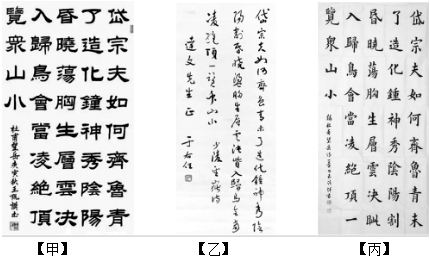 岱宗夫如何齊魯青
了造化鐘神秀陰陽
昏曉蕩胸生層雲决
入歸鳥會當凌絕頂
覽眾山小
杜甫望岳庚寅秋
岱宗夫如何齊魯青未了造化鍾神秀陰
陽割昏曉盪胸生層雲決眥入歸鳥會當
凌絕頂一覽眾山小 少陵望嶽詩
達文先生正 于右任
岱宗夫如何齊魯青未
了造化鍾神秀陰陽割
昏曉蕩胸生層雲决眥
入歸鳥會當凌絕頂一
覽眾山小
【甲】
【乙】
【丙】